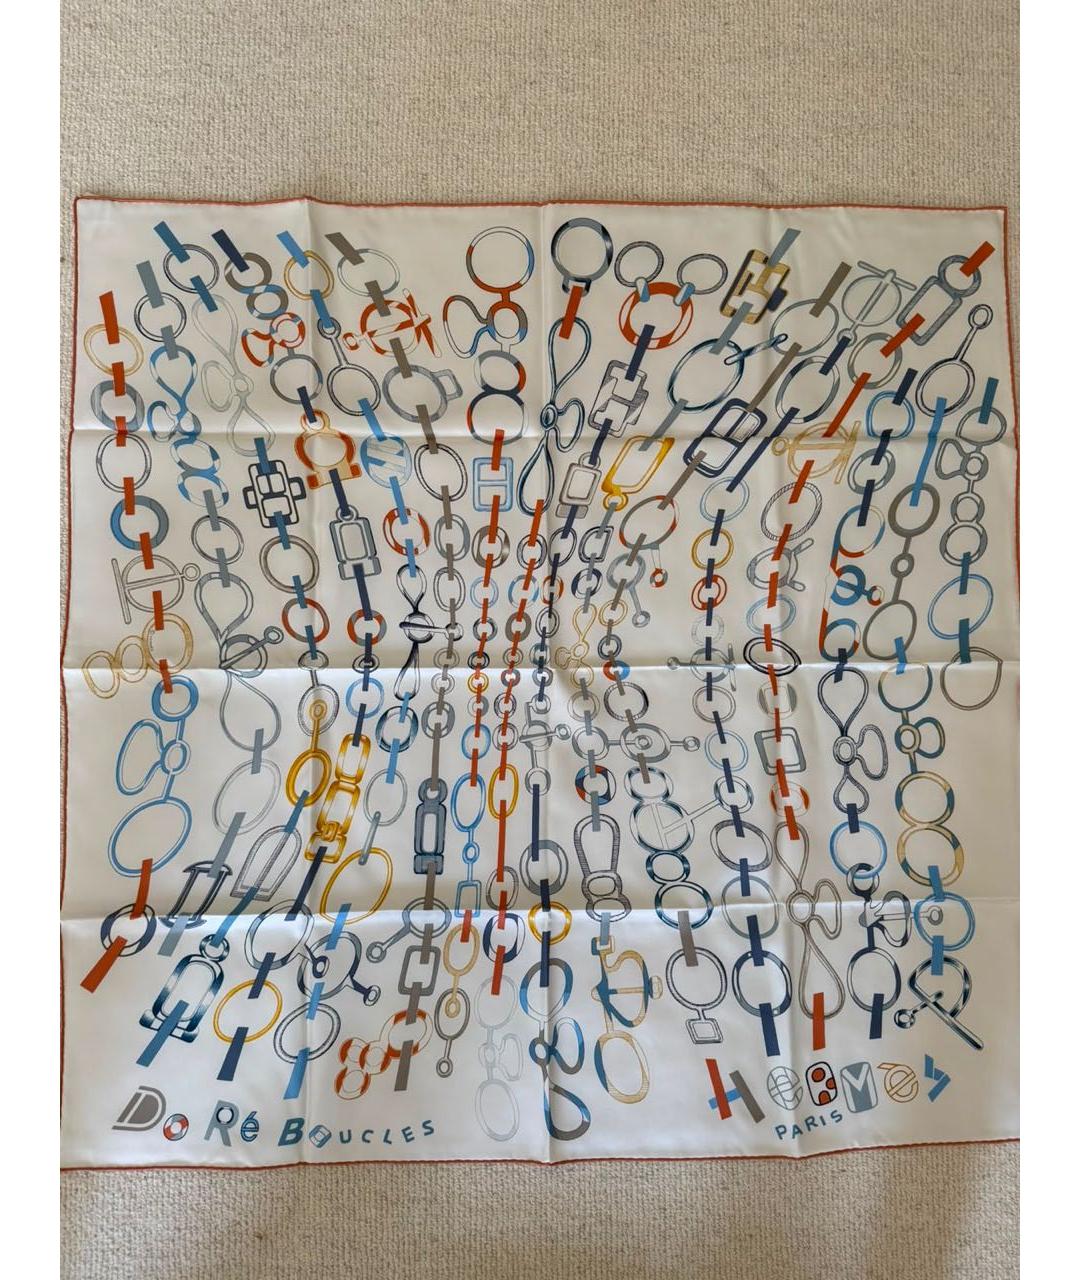 Do Ré BOUCLES
HERMÈS
PARIS